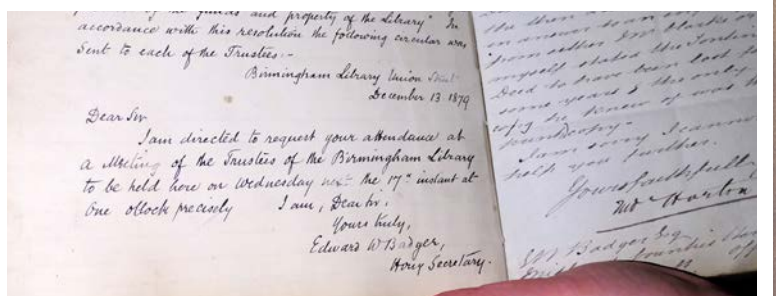 of the funds and property of the Library" In
accordance with this resolution the following circular was
sent to each of the Trustees:-
Birmingham Library Union Street
December 13. 1879
Dear Sir
I am directed to request your attendance at
a Meeting of the Trustees of the Birmingham Library
to be held here on Wednesday next the 17th instant at
One oClock precisely I am, Dear Sir,
Yours truly,
Edward W Badger,
Hony Secretary.
the then
in answer to an
from either Mr Clarke or
myself stated the Tontine
Deed to have been lost for
some years & the only
copy he knew of was
I am sorry I cannot
help you further.
Yours faithfully
Horton
E W Badger Esq
Midland Counties